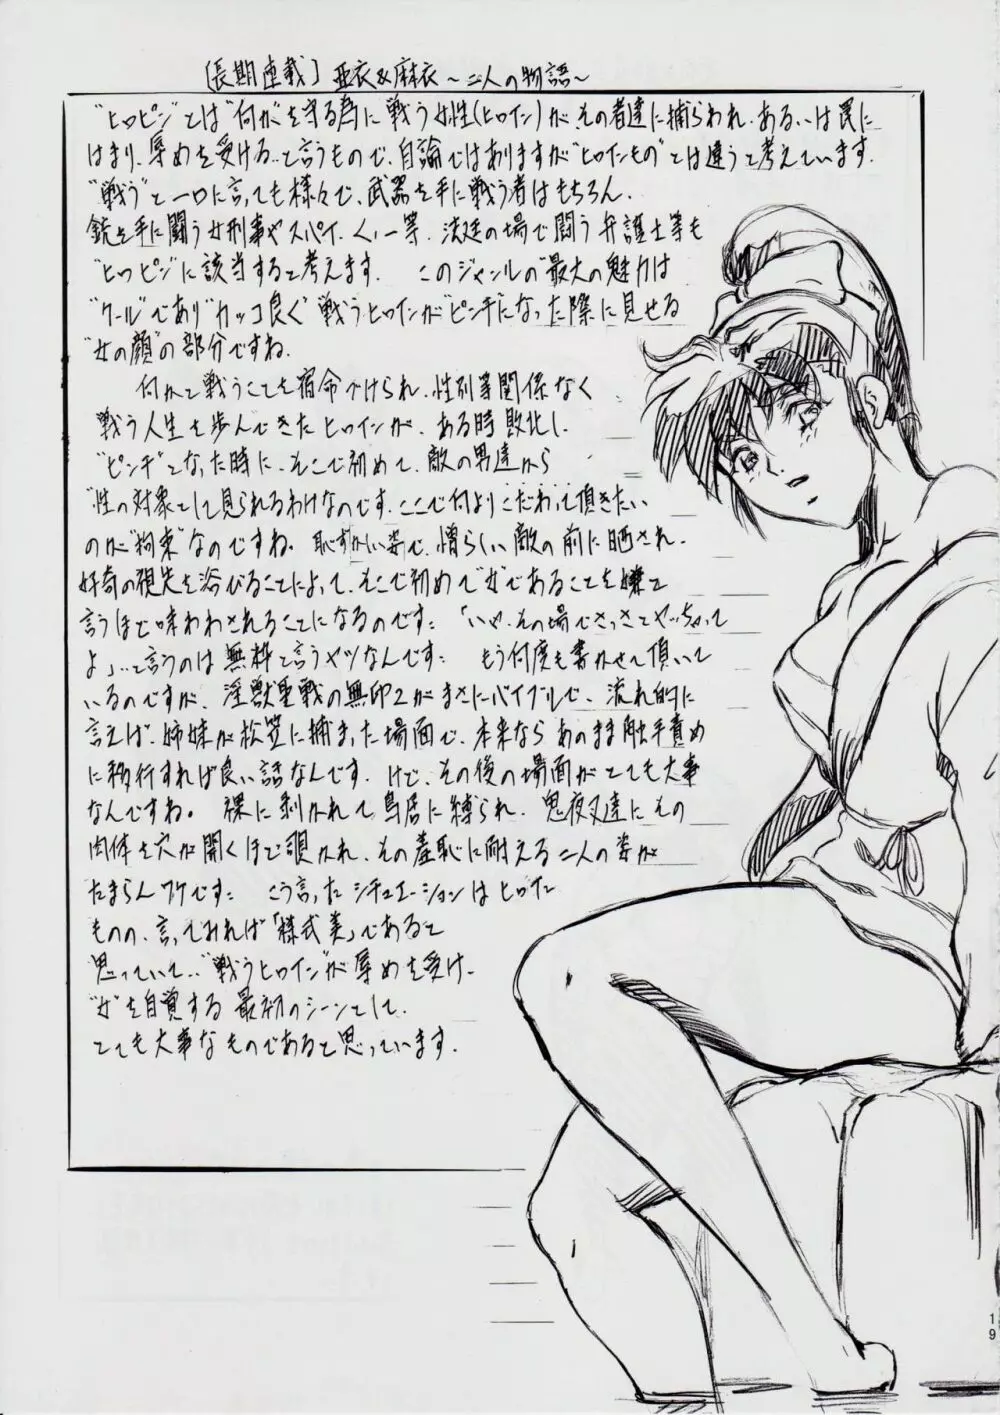 〔長期連載〕亜衣&麻衣～二人の物語～
"ヒロピン"とは"何か"を守る為に戦う女性(ヒロイン)が、その者達に捕らわれ、あるいは罠に
はまり、辱めを受ける…と言うもので、自論ではありますが"ヒロインもの"とは違うと考えています。
"戦う"と一口に言っても様々で、武器を手に戦う者はもちろん、
銃を手に闘う女刑事やスパイ、くノ一等、法廷の場で闘う弁護士等も
"ヒロピン"に該当すると考えます。 このジャンルの"最大の魅力は
"クール"であり"カッコ良く"戦うヒロインが"ピンチ"になった際に見せる
"女の顔"の部分ですね。
何かと戦うことを宿命づけられ、性別等関係なく
戦う人生を歩んできたヒロインが、ある時敗北し、
"ピンチ"となった時に、そこで初めて、敵の男達から
"性の対象として見られるわけなのです。ここで何よりこだわって頂きたい
のが"拘束"なのですね。恥ずかしい姿で、憎らしい敵の前に晒され、
好奇の視先を浴びることによって、そこで初めて"女"であることを嫌と
言うほど味わわされることになるのです。「いや、その場でさっさとヤッちゃって
よ」…と言うのは無粋と言うヤツなんです。 もう何度も書かせて頂いて
いるのですが、淫獣聖戦の無印2がまさにバイブルで、流れ的に
言えば、姉妹が松笠に捕まった場面で、本来ならあのまま触手責め
に移行すれば良い話なんです。けど、その後の場面がとても大事
なんですね。 裸に剥かれて鳥居に縛られ、鬼夜叉達にその
肉体を穴が開くほど覗かれ、その羞恥に耐える二人の姿が
たまらんワケです。 こう言ったシチュエーションはヒロイン
ものの、言ってみれば「様式美」であると
思っていて…"戦うヒロイン"が辱めを受け、
"女"を自覚する最初のシーンとして、
とても大事なものであると思っています。
19